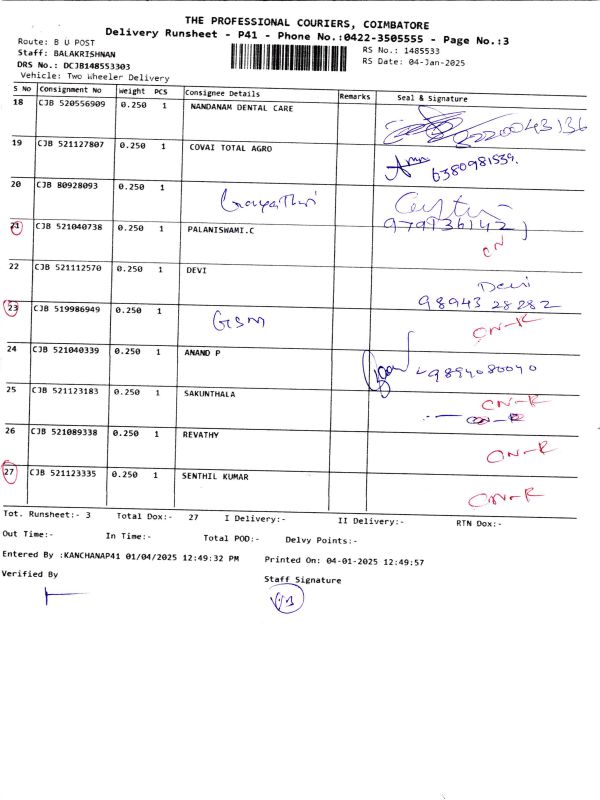 THE PROFESSIONAL COURIERS, COIMBATORE
Delivery Runsheet - P41 - Phone No.:0422-3505555 - Page No.:3
Route: B U POST
Staff: BALAKRISHNAN
DRS No.: DCJB148553303
Vehicle: Two Wheeler Delivery
RS No.: 1485533
RS Date: 04-Jan-2025
S No Consignment No Weight PCS Consignee Details Remarks Seal & Signature
18 CJB 520556909 0.250 1 NANDANAM DENTAL CARE
19 CJB 521127807 0.250 1 COVAI TOTAL AGRO
6380981539.
20 CJB 80928093 0.250 1 Gayathri
21 CJB 521040738 0.250 1 PALANISWAMI.C
CN
22 CJB 521112570 0.250 1 DEVI
Devi
98943 28282
23 CJB 519986949 0.250 1 GSM CN-R
24 CJB 521040339 0.250 1 ANAND P
9894080040
25 CJB 521123183 0.250 1 SAKUNTHALA CN-R
26 CJB 521089338 0.250 1 REVATHY CN-R
27 CJB 521123335 0.250 1 SENTHIL KUMAR CN-R
Tot. Runsheet:- 3 Total Dox:- 27 I Delivery:- II Delivery:- RTN Dox:-
Out Time:- In Time:- Total POD:- Delvy Points:-
Entered By :KANCHANAP41 01/04/2025 12:49:32 PM Printed On: 04-01-2025 12:49:57
Verified By Staff Signature